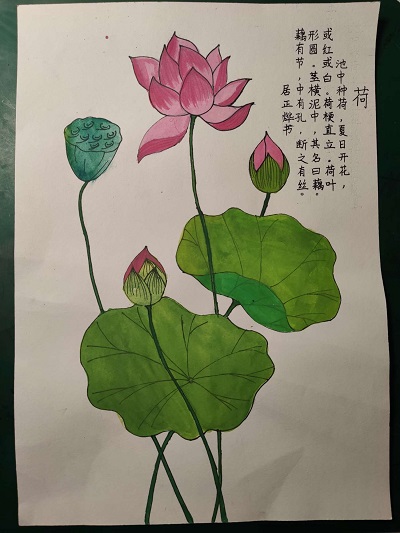 荷
池中种荷，夏日开花，
或红或白。荷梗直立。荷叶
形圆。茎横泥中，其名曰藕。
藕有节，中有孔，断之有丝。
居正烨